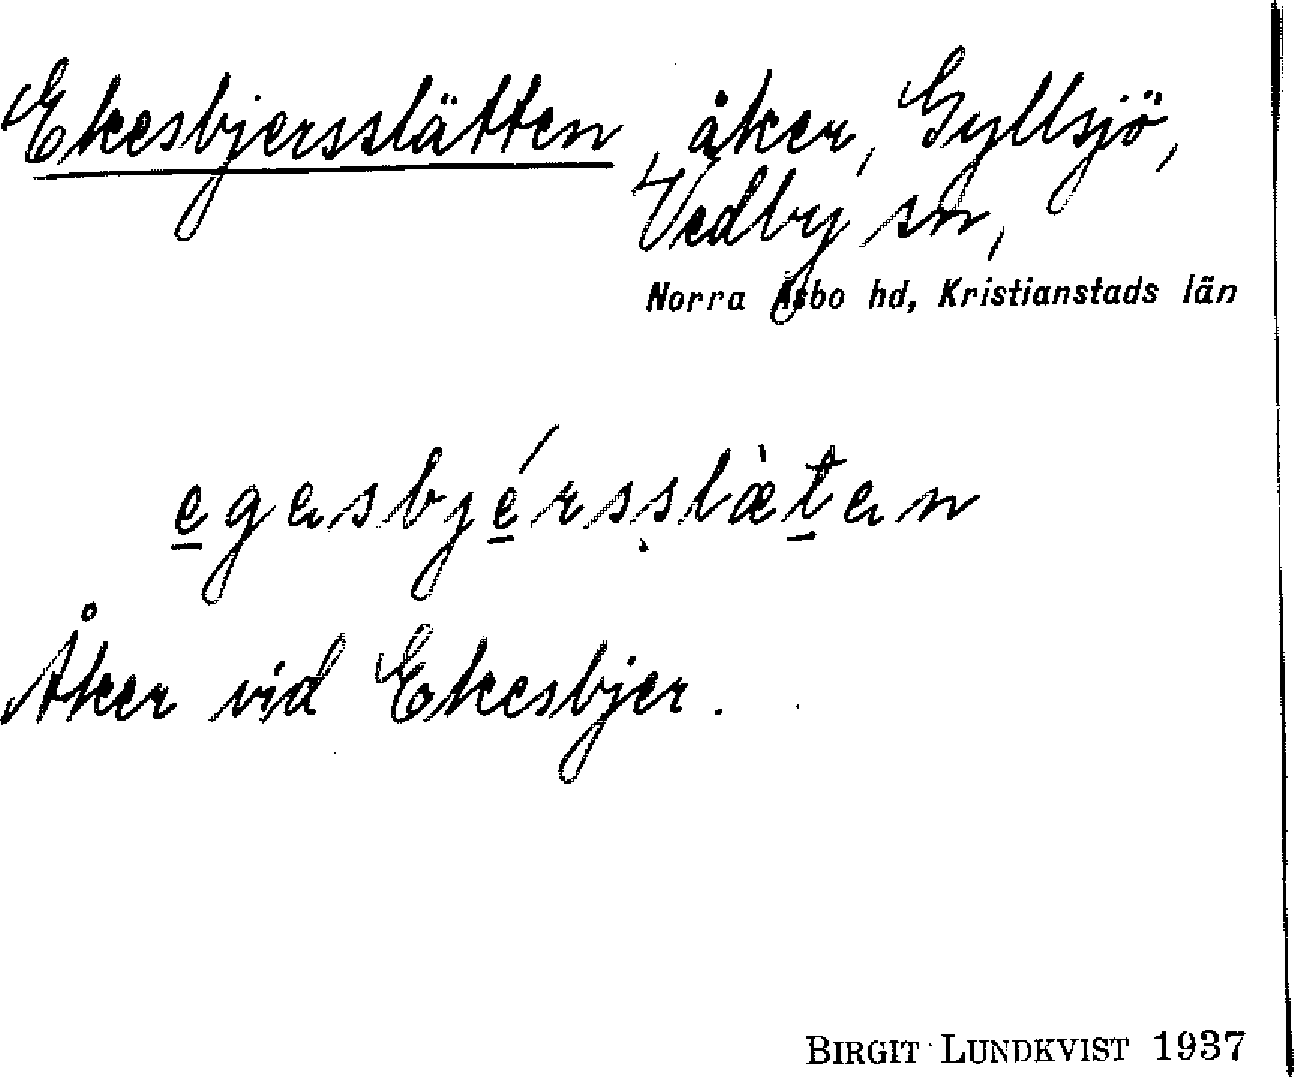 Ekesbjersslätten, åker, Gyllsjö,
Vedby sn,
Norra Åsbo hd, Kristianstads län
e̲gəsbjé̲rsṣlæ̀t̲ən
Åker vid Ekesbjer.
BIRGIT LUNDKVIST 1937